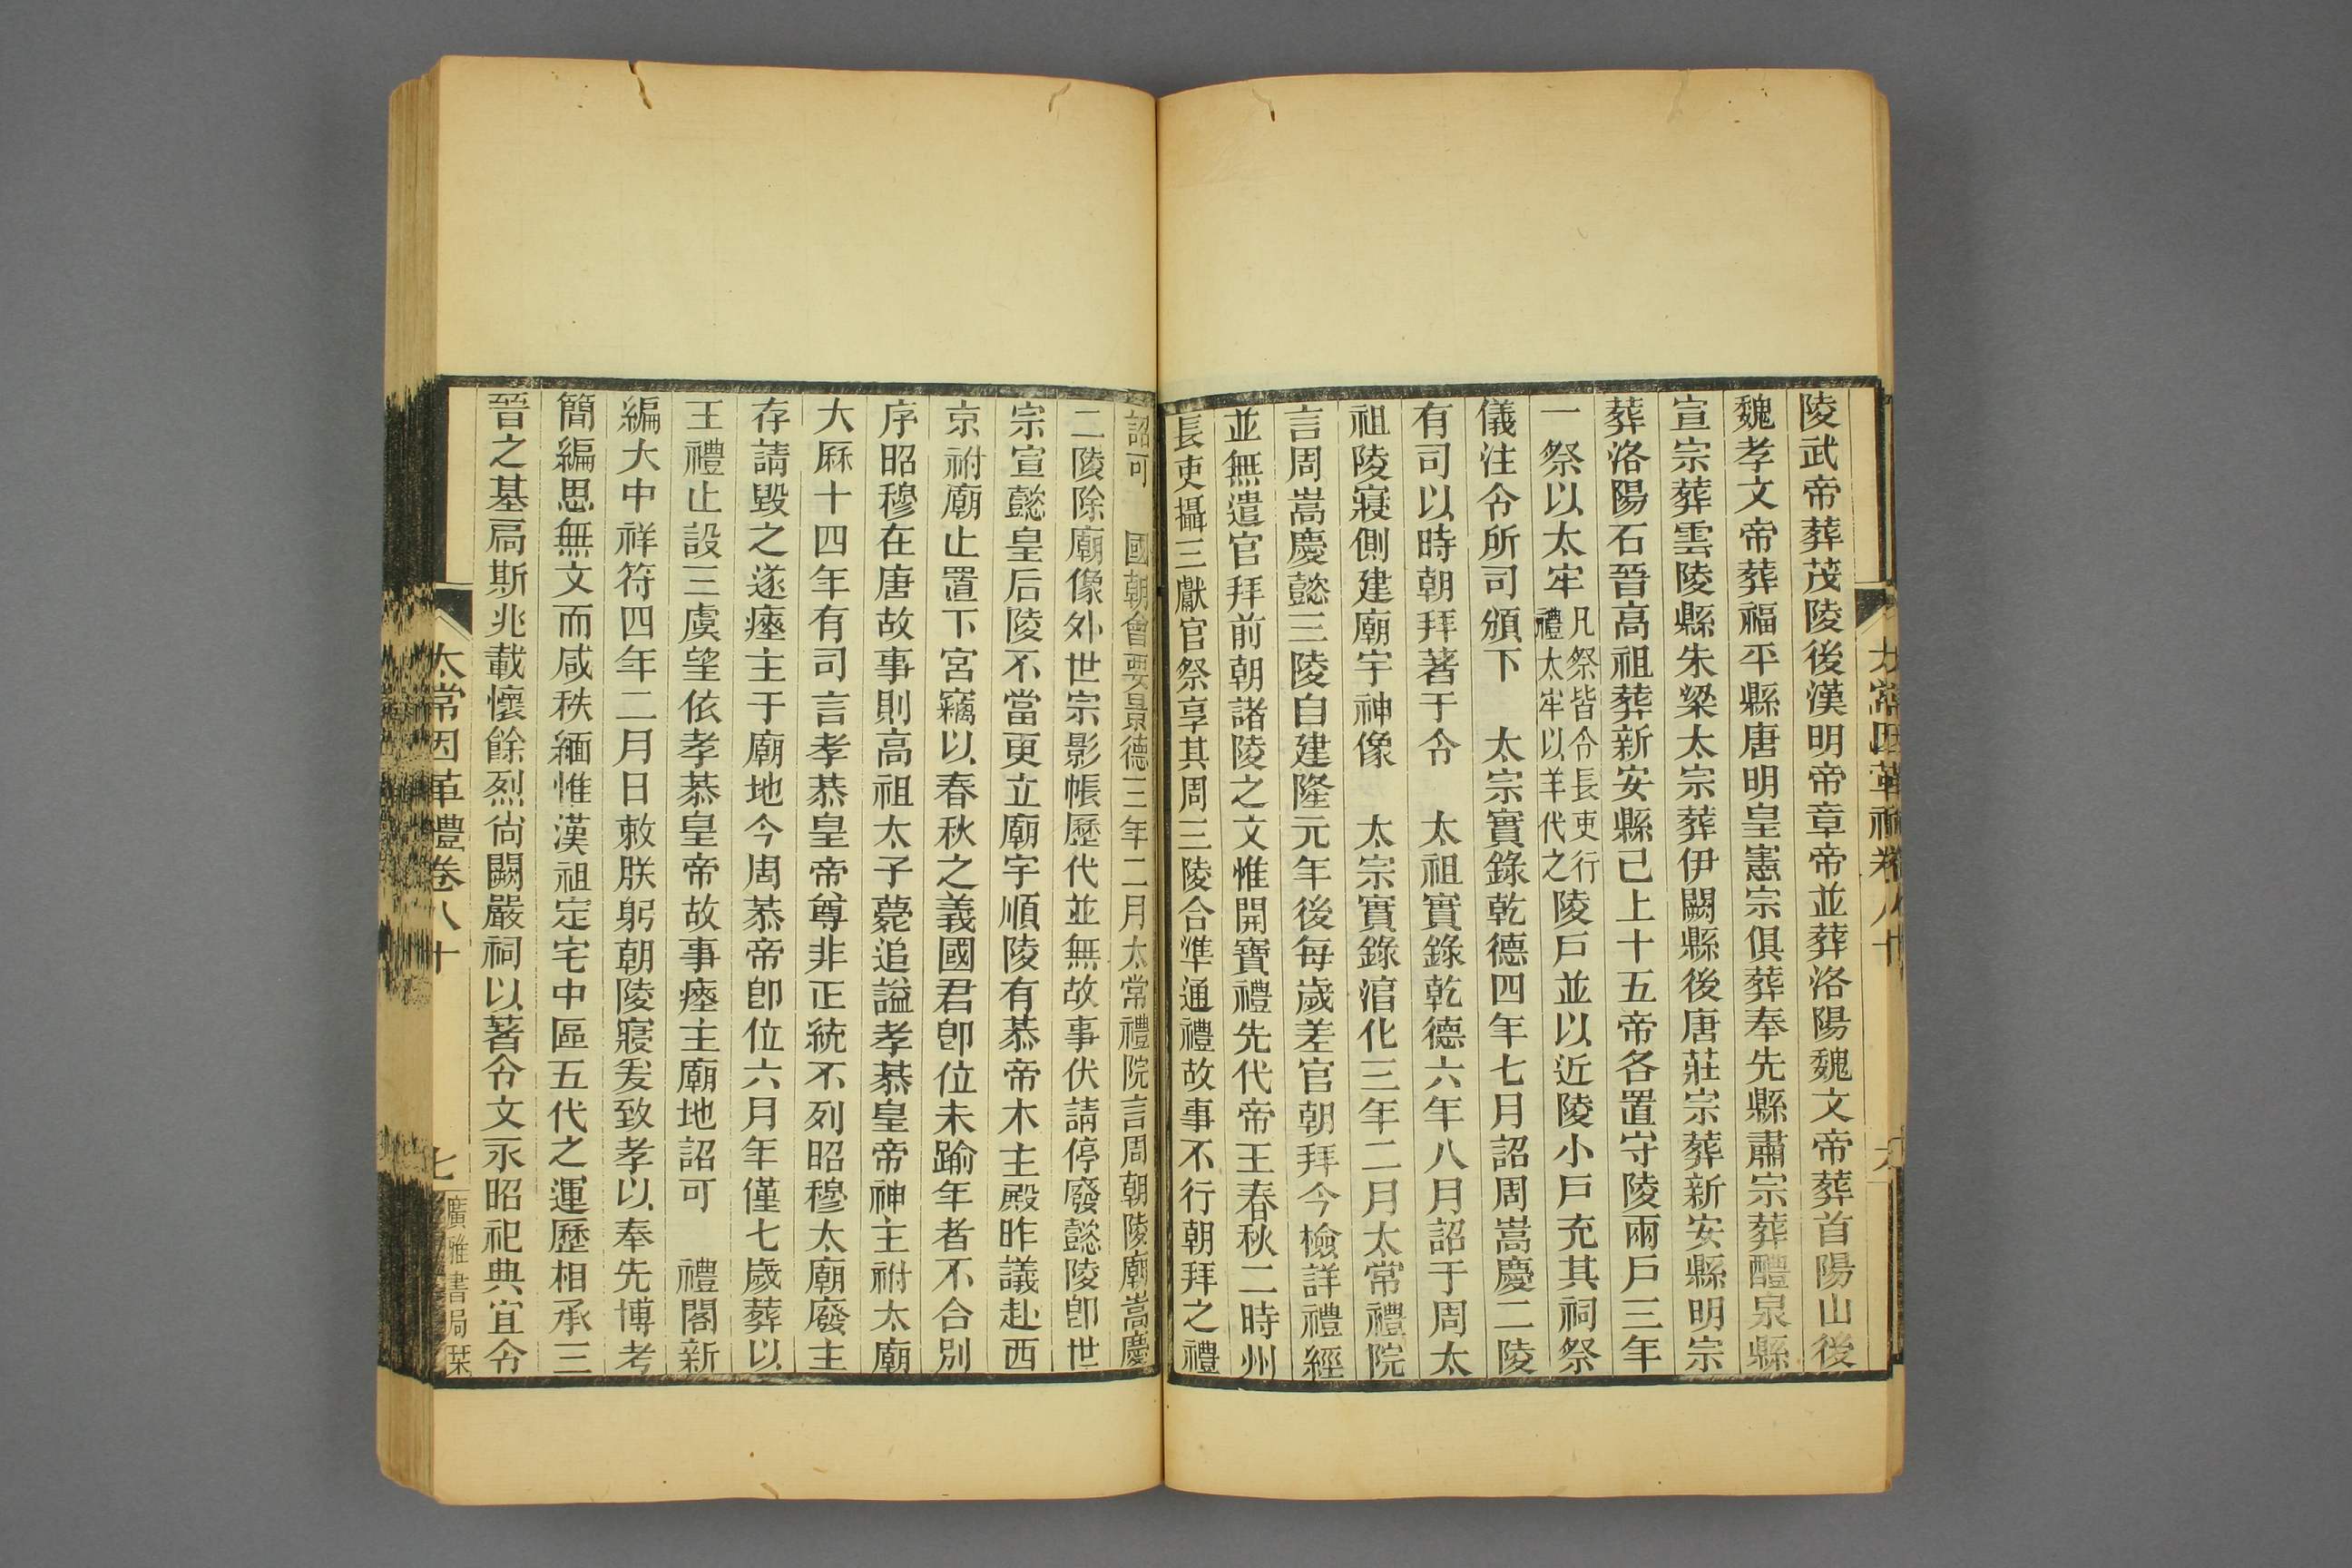 陵武帝葬茂陵後漢明帝章帝並葬洛陽魏文帝葬首陽山後
魏孝文帝葬福平縣唐明皇憲宗俱葬奉先縣肅宗葬醴泉縣
宣宗葬雲陵縣朱梁太宗葬伊闕縣後唐莊宗葬新安縣明宗
葬洛陽石晉高祖葬新安縣已上十五帝各置守陵兩戶三年
一祭以太牢凡祭皆令長吏行禮太牢以羊代之陵戶並以近陵小戶充其祠祭
儀注令所司頒下　太宗實錄乾德四年七月詔周嵩慶二陵
有司以時朝拜著于令　太祖實錄乾德六年八月詔于周太
祖陵寢側建廟宇神像　太宗實錄淯化三年二月太常禮院
言周嵩慶懿三陵自建隆元年後每歲差官朝拜今檢詳禮經
並無遣官拜前朝諸陵之文惟開寶禮先代帝王春秋二時州
長吏攝三獻官祭享其周三陵合準通禮故事不行朝拜之禮
詔可　國朝會要景德三年二月太常禮院言周朝陵廟嵩慶
二陵除廟像外世宗影帳歷代並無故事伏請停廢懿陵卽世
宗宣懿皇后陵不當更立廟宇順陵有恭帝木主殿昨議赴西
京祔廟止置下宮竊以春秋之義國君卽位未踰年者不合別
序昭穆在唐故事則高祖太子薨追謚孝恭皇帝神主祔太廟
大厤十四年有司言孝恭皇帝尊非正統不列昭穆太廟廢主
存請毀之遂瘞主于廟地今周恭帝卽位六月年僅七歲葬以
王禮止設三虞望依孝恭皇帝故事瘞主廟地詔可　禮閣新
編大中祥符四年二月日敕朕躬朝陵寢爰致孝以奉先博考
簡編思無文而咸秩緬惟漢祖定宅中區五代之運歷相承三
晉之基扃斯兆載懷餘烈尙闕嚴祠以著令文永昭祀典宜令
太常因革禮卷八十
七
廣雅書局栞